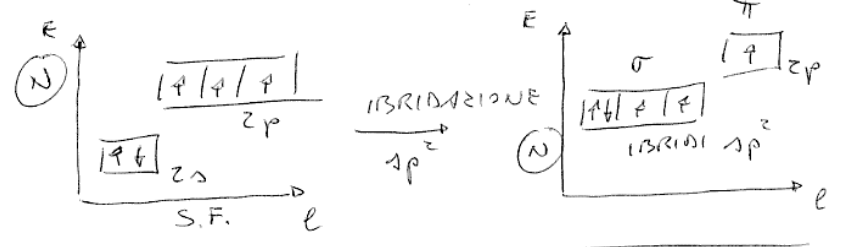 E
N
↑ ↑ ↑
2p
↑↓
2s
S.F.
l
IBRIDAZIONE
sp²
E
N
π
↑
2p
σ
↑↓ ↑ ↑
IBRIDI sp²
l